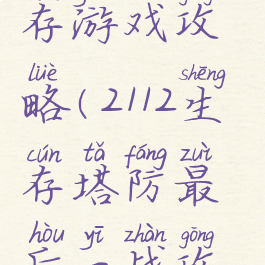 存游戏攻
lüè shēng
略(2112生
cún tǎ fáng zuì
存塔防最
hòu yī zhàn gōng
后一战攻